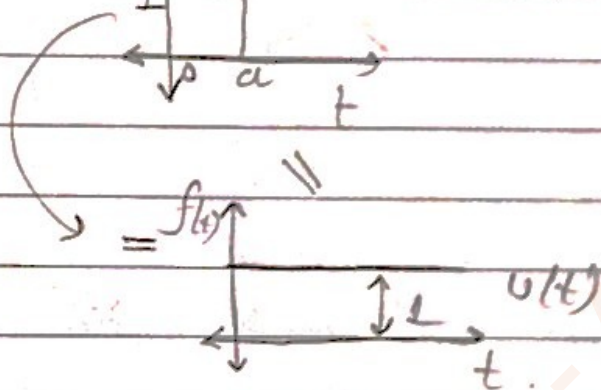 1
0 a
t
=
= f(t)
1 u(t)
t.